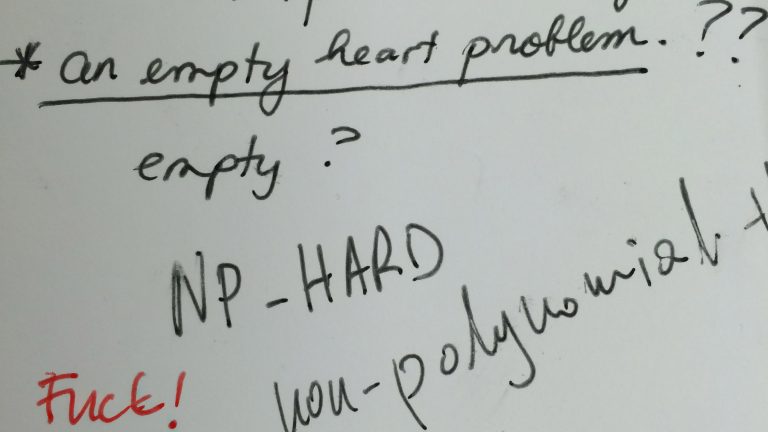 * an empty heart problem. ??
empty ?
NP-HARD
non-polynomial
Fuck!